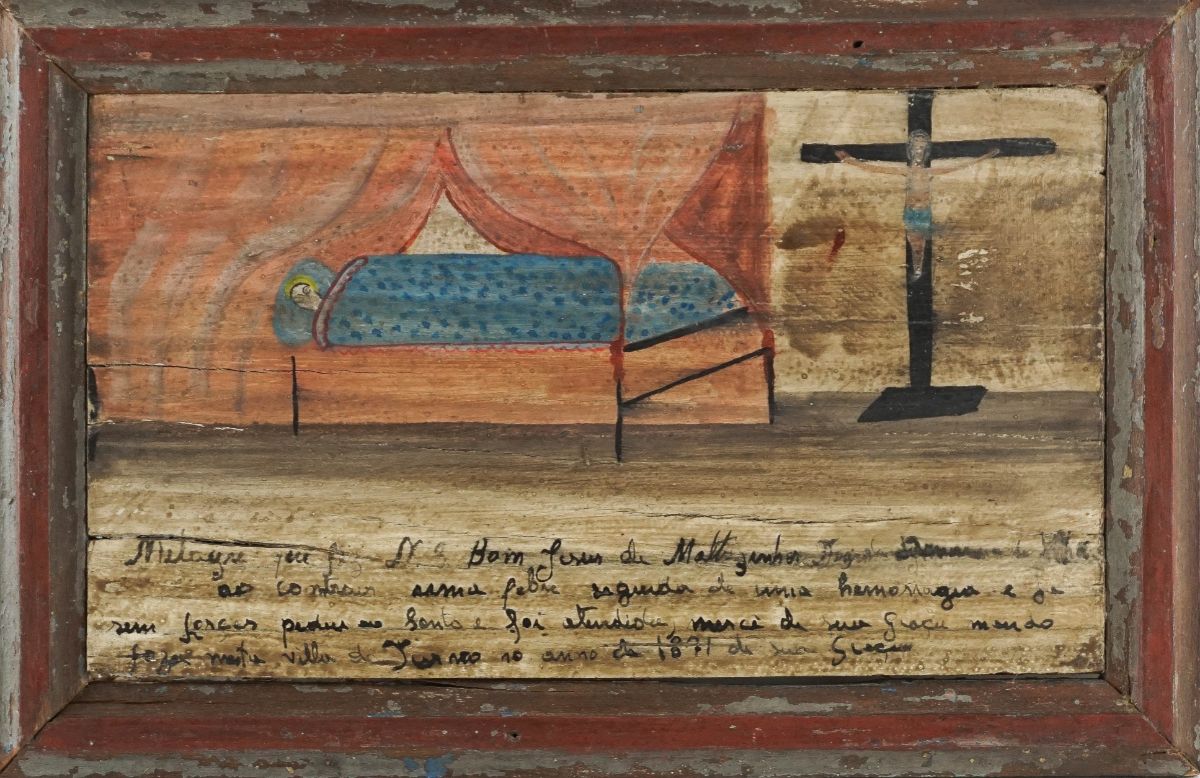 Milagre que fez N. S. Bom Jesus de Mattozinhos
ao contrair uma febre seguida de uma hemorragia e ja
sem forças pediu ao Santo e foi atendida, mercê de sua Graça mando
fazer nesta villa de Turvo no anno de 1871 de sua Graça